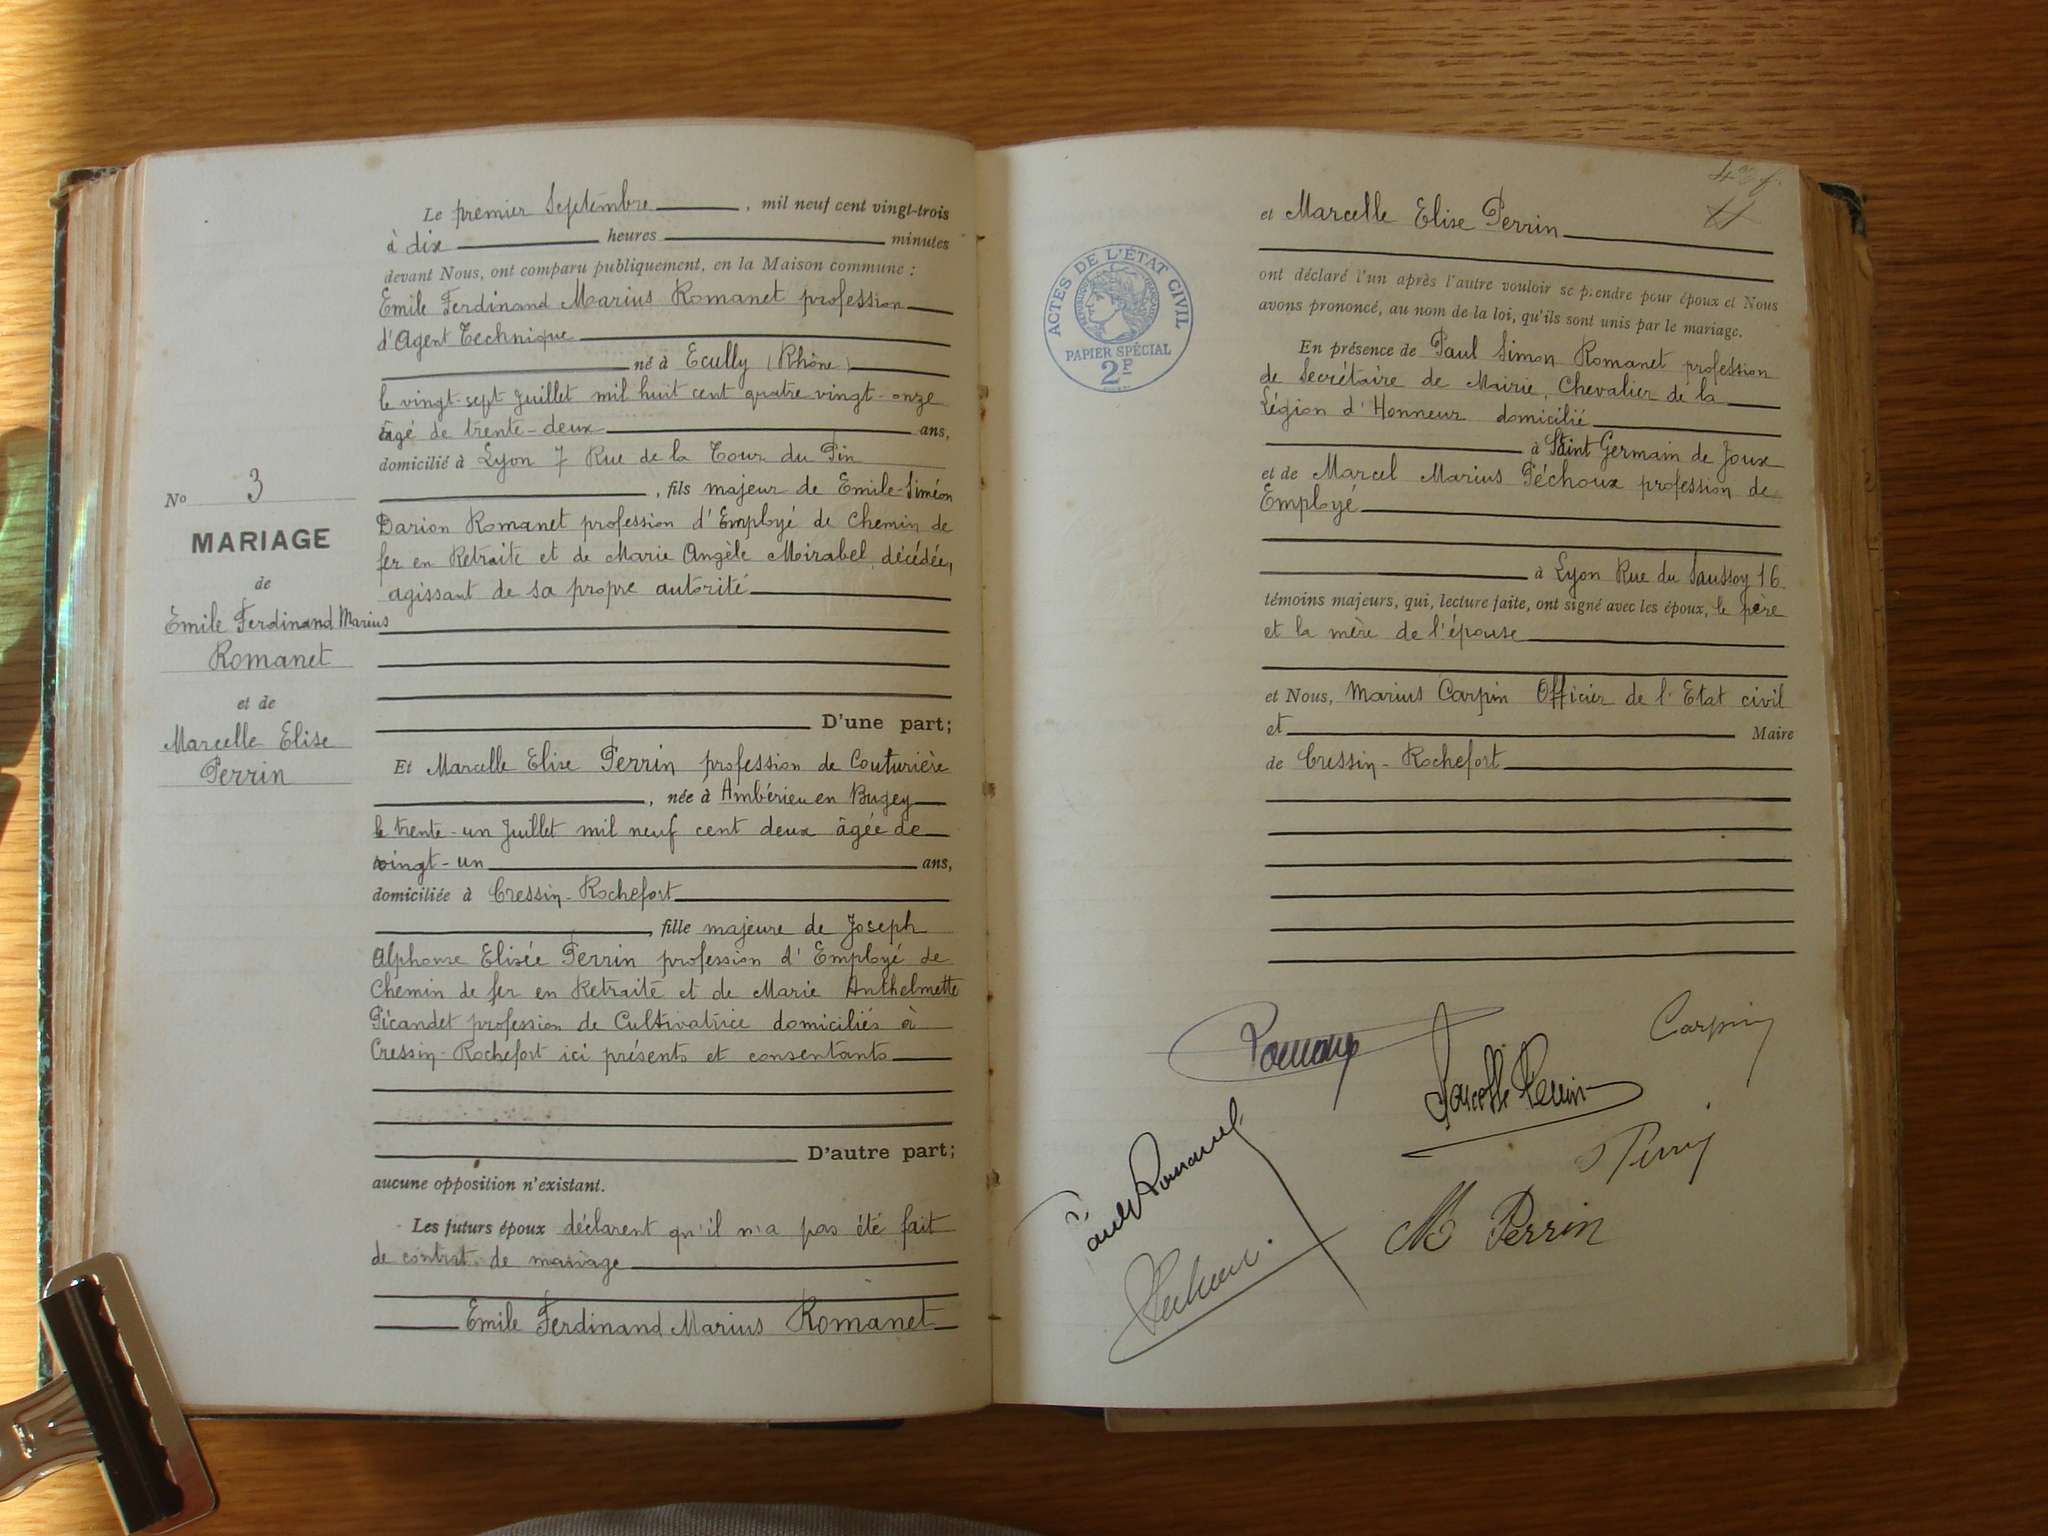 Le premier Septembre, mil neuf cent vingt-trois
à dix heures minutes
devant Nous, ont comparu publiquement, en la Maison commune :
Emile Ferdinand Marius Romanet profession
d'Agent Technique
né à Ecully (Rhône)
le vingt-sept Juillet mil huit cent quatre vingt-onze
âgé de trente-deux ans,
domicilié à Lyon 7 Rue de la Tour du Pin
, fils majeur de Emile-Siméon
Darion Romanet profession d'Employé de Chemin de
fer en Retraite et de Marie Angèle Mirabel, décédée,
agissant de sa propre autorité
D'une part;
Et Marcelle Elise Perrin profession de Couturière
, née à Ambérieu en Bugey
le trente-un Juillet mil neuf cent deux âgée de
vingt-un ans,
domiciliée à Cressin-Rochefort
, fille majeure de Joseph
Alphonse Elisée Perrin profession d'Employé de
Chemin de fer en Retraite et de Marie Anthelmette
Picandet profession de Cultivatrice domiciliés à
Cressin-Rochefort ici présents et consentants
D'autre part;
aucune opposition n'existant.
Les futurs époux déclarent qu'il n'a pas été fait
de contrat de mariage
Emile Ferdinand Marius Romanet
No 3
MARIAGE
de
Emile Ferdinand Marius
Romanet
et de
Marcelle Elise
Perrin
et Marcelle Elise Perrin
ont déclaré l'un après l'autre vouloir se prendre pour époux et Nous
avons prononcé, au nom de la loi, qu'ils sont unis par le mariage.
En présence de Paul Simon Romanet profession
de Secrétaire de Mairie, Chevalier de la
Légion d'Honneur domicilié
à Saint Germain de Joux
et de Marcel Marius Péchoux profession de
Employé
à Lyon Rue du Saussoy 16
témoins majeurs, qui, lecture faite, ont signé avec les époux, le père
et la mère de l'épouse
et Nous, Marius Carpin Officier de l'Etat civil
et Maire
de Cressin-Rochefort
ACTES DE L'ÉTAT CIVIL
RÉPUBLIQUE FRANÇAISE
PAPIER SPÉCIAL
2F
Romanet
Carpin
Marcelle Perrin
Paul Romanet
Perrin
M Perrin